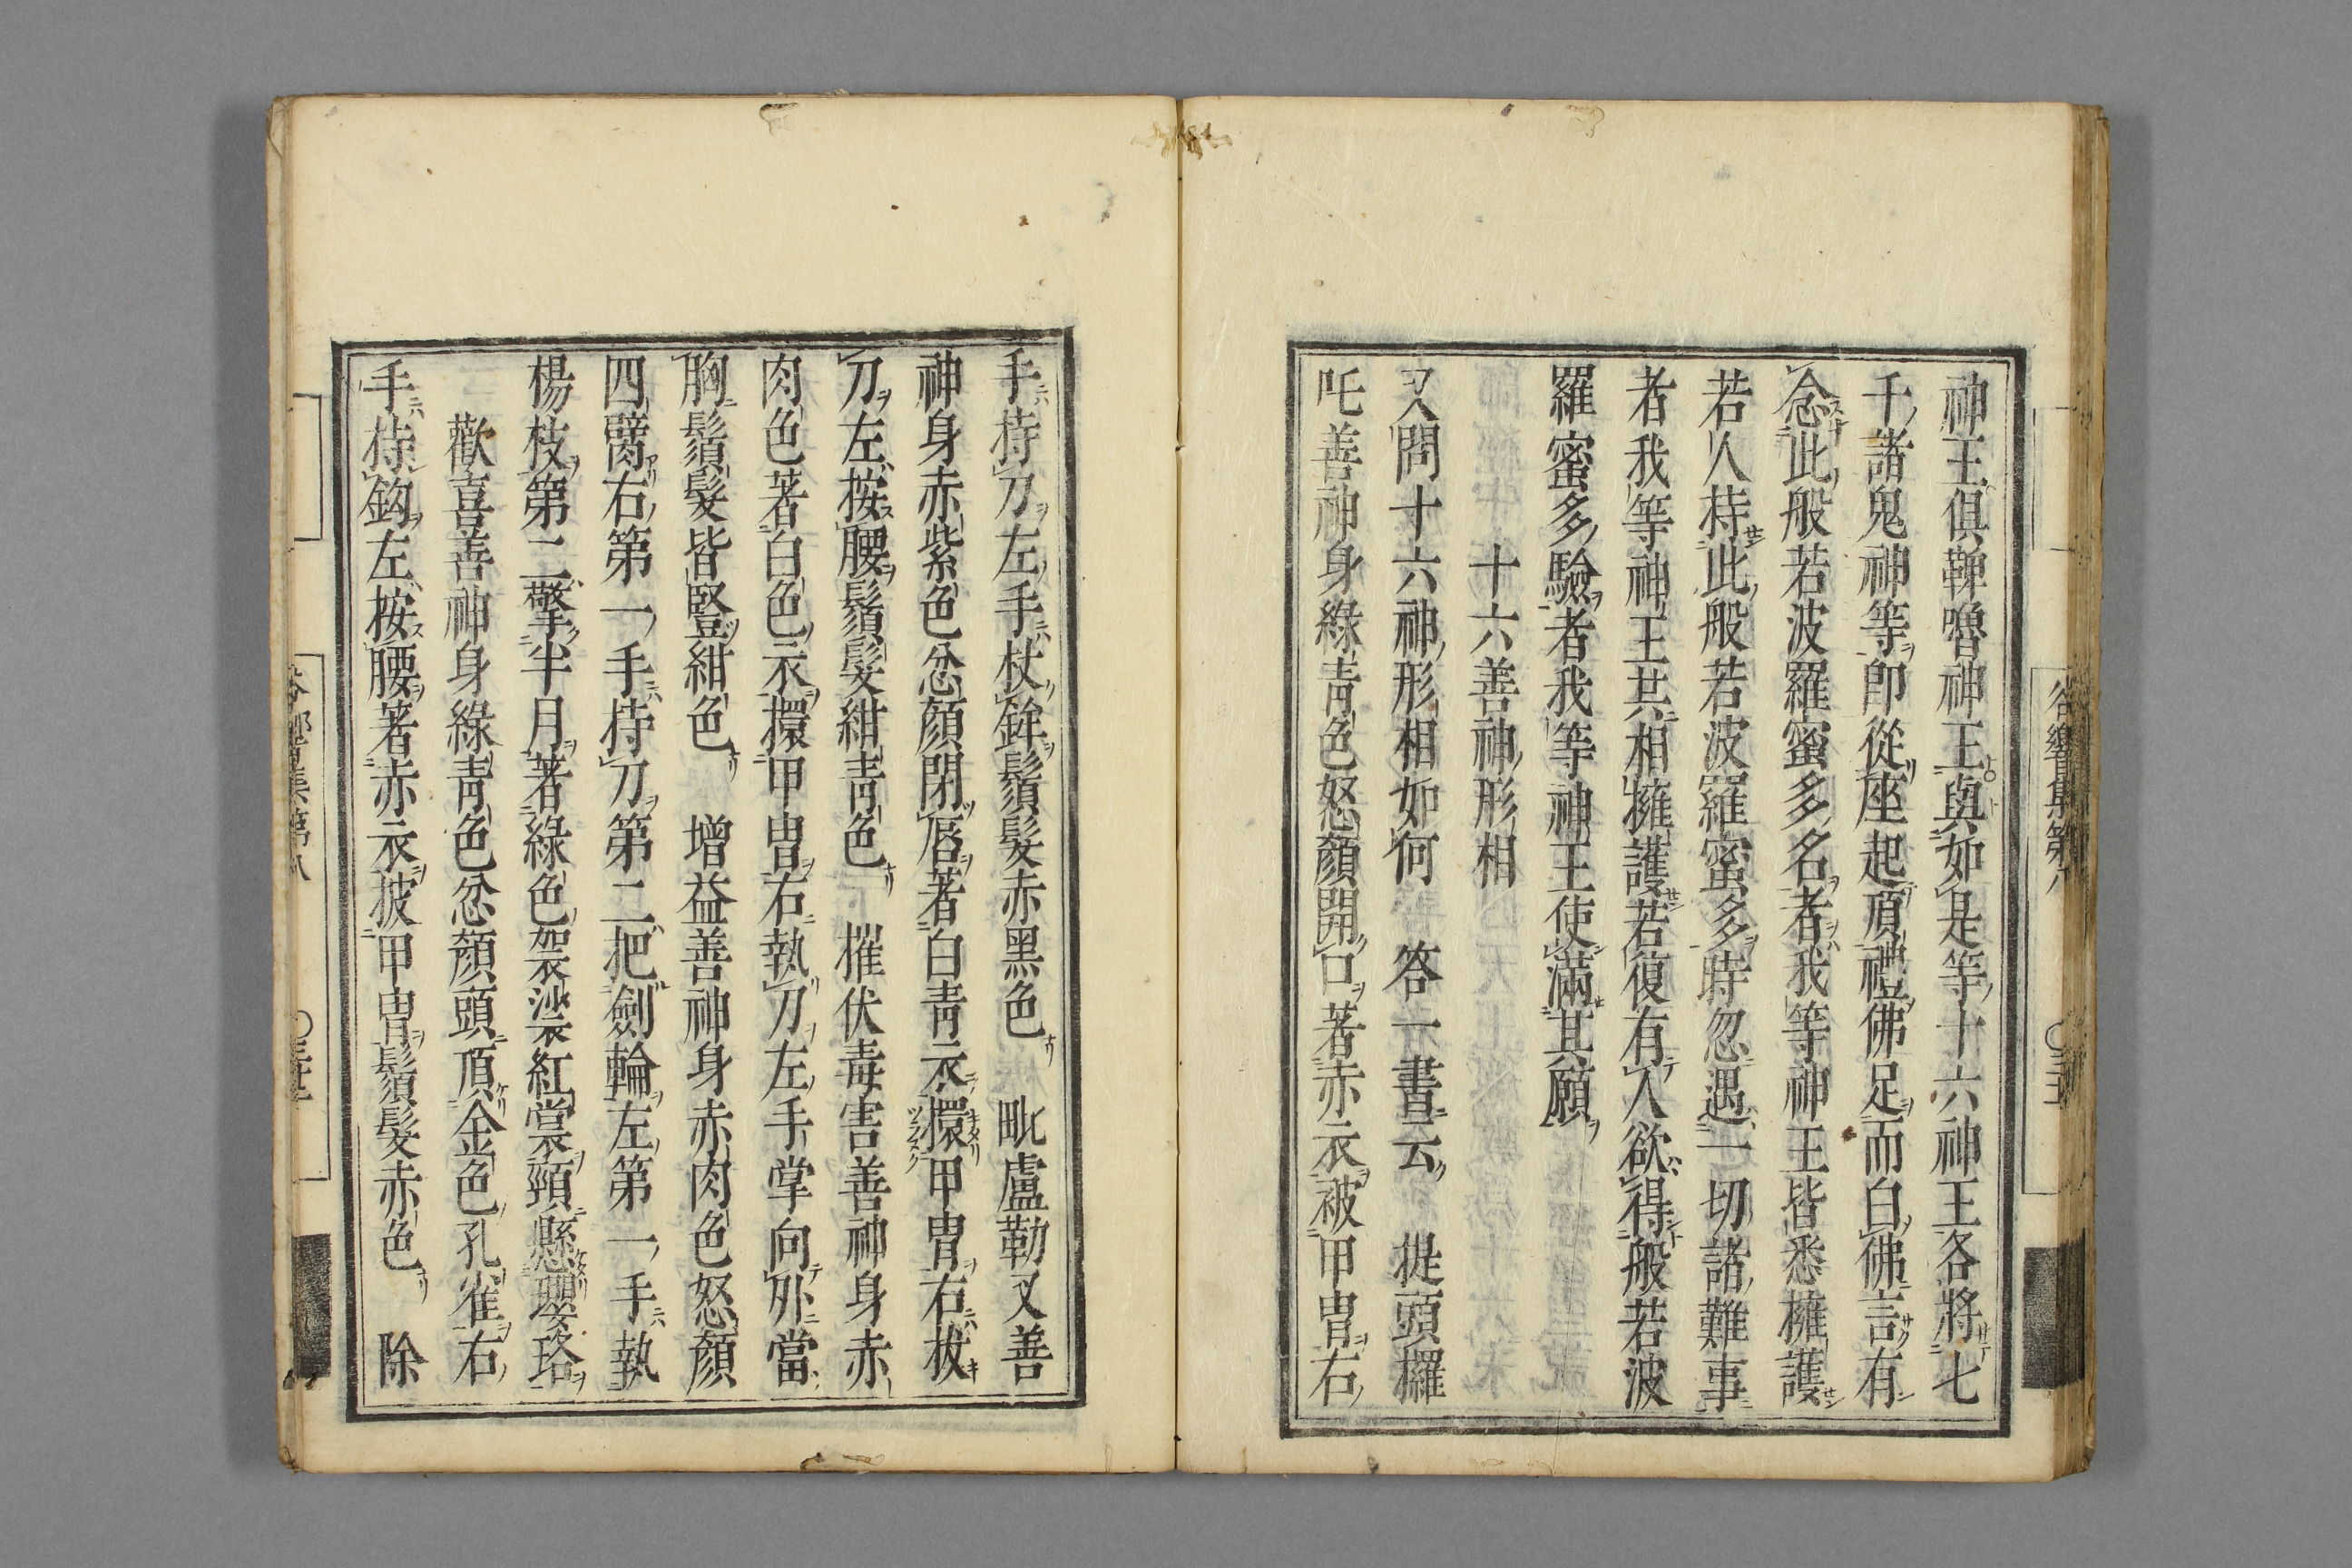 神王俱鞞嚕神王與如是等十六神王各將七
千諸鬼神等卽從座起頂禮佛足而白佛言有
念此般若波羅蜜多名者我等神王皆悉擁護
若人持此般若波羅蜜多時忽遇一切諸難事
者我等神王其相擁護若復有人欲得般若波
羅蜜多驗者我等神王使滿其願
十六善神形相
又問十六神形相如何 答一書云 提頭攞
吒善神身綠青色怒顏開口著赤衣被甲冑右
手持刀左手杖鉾鬚髮赤黑色 毗盧勒叉善
神身赤紫色忿顏閉唇著白青衣擐甲冑右拔
刀左按腰鬚髮紺青色 摧伏毒害善神身赤
肉色著白色衣擐甲冑右執刀左手掌向外當
胸鬚髮皆豎紺色 增益善神身赤肉色怒顏
四臂右第一手持刀第二把劍輪左第一手執
楊枝第二擎半月著綠色袈裟紅裳頸懸瓔珞
歡喜善神身綠青色忿顏頭頂金色孔雀右
手持鉤左按腰著赤衣披甲冑鬚髮赤色 除